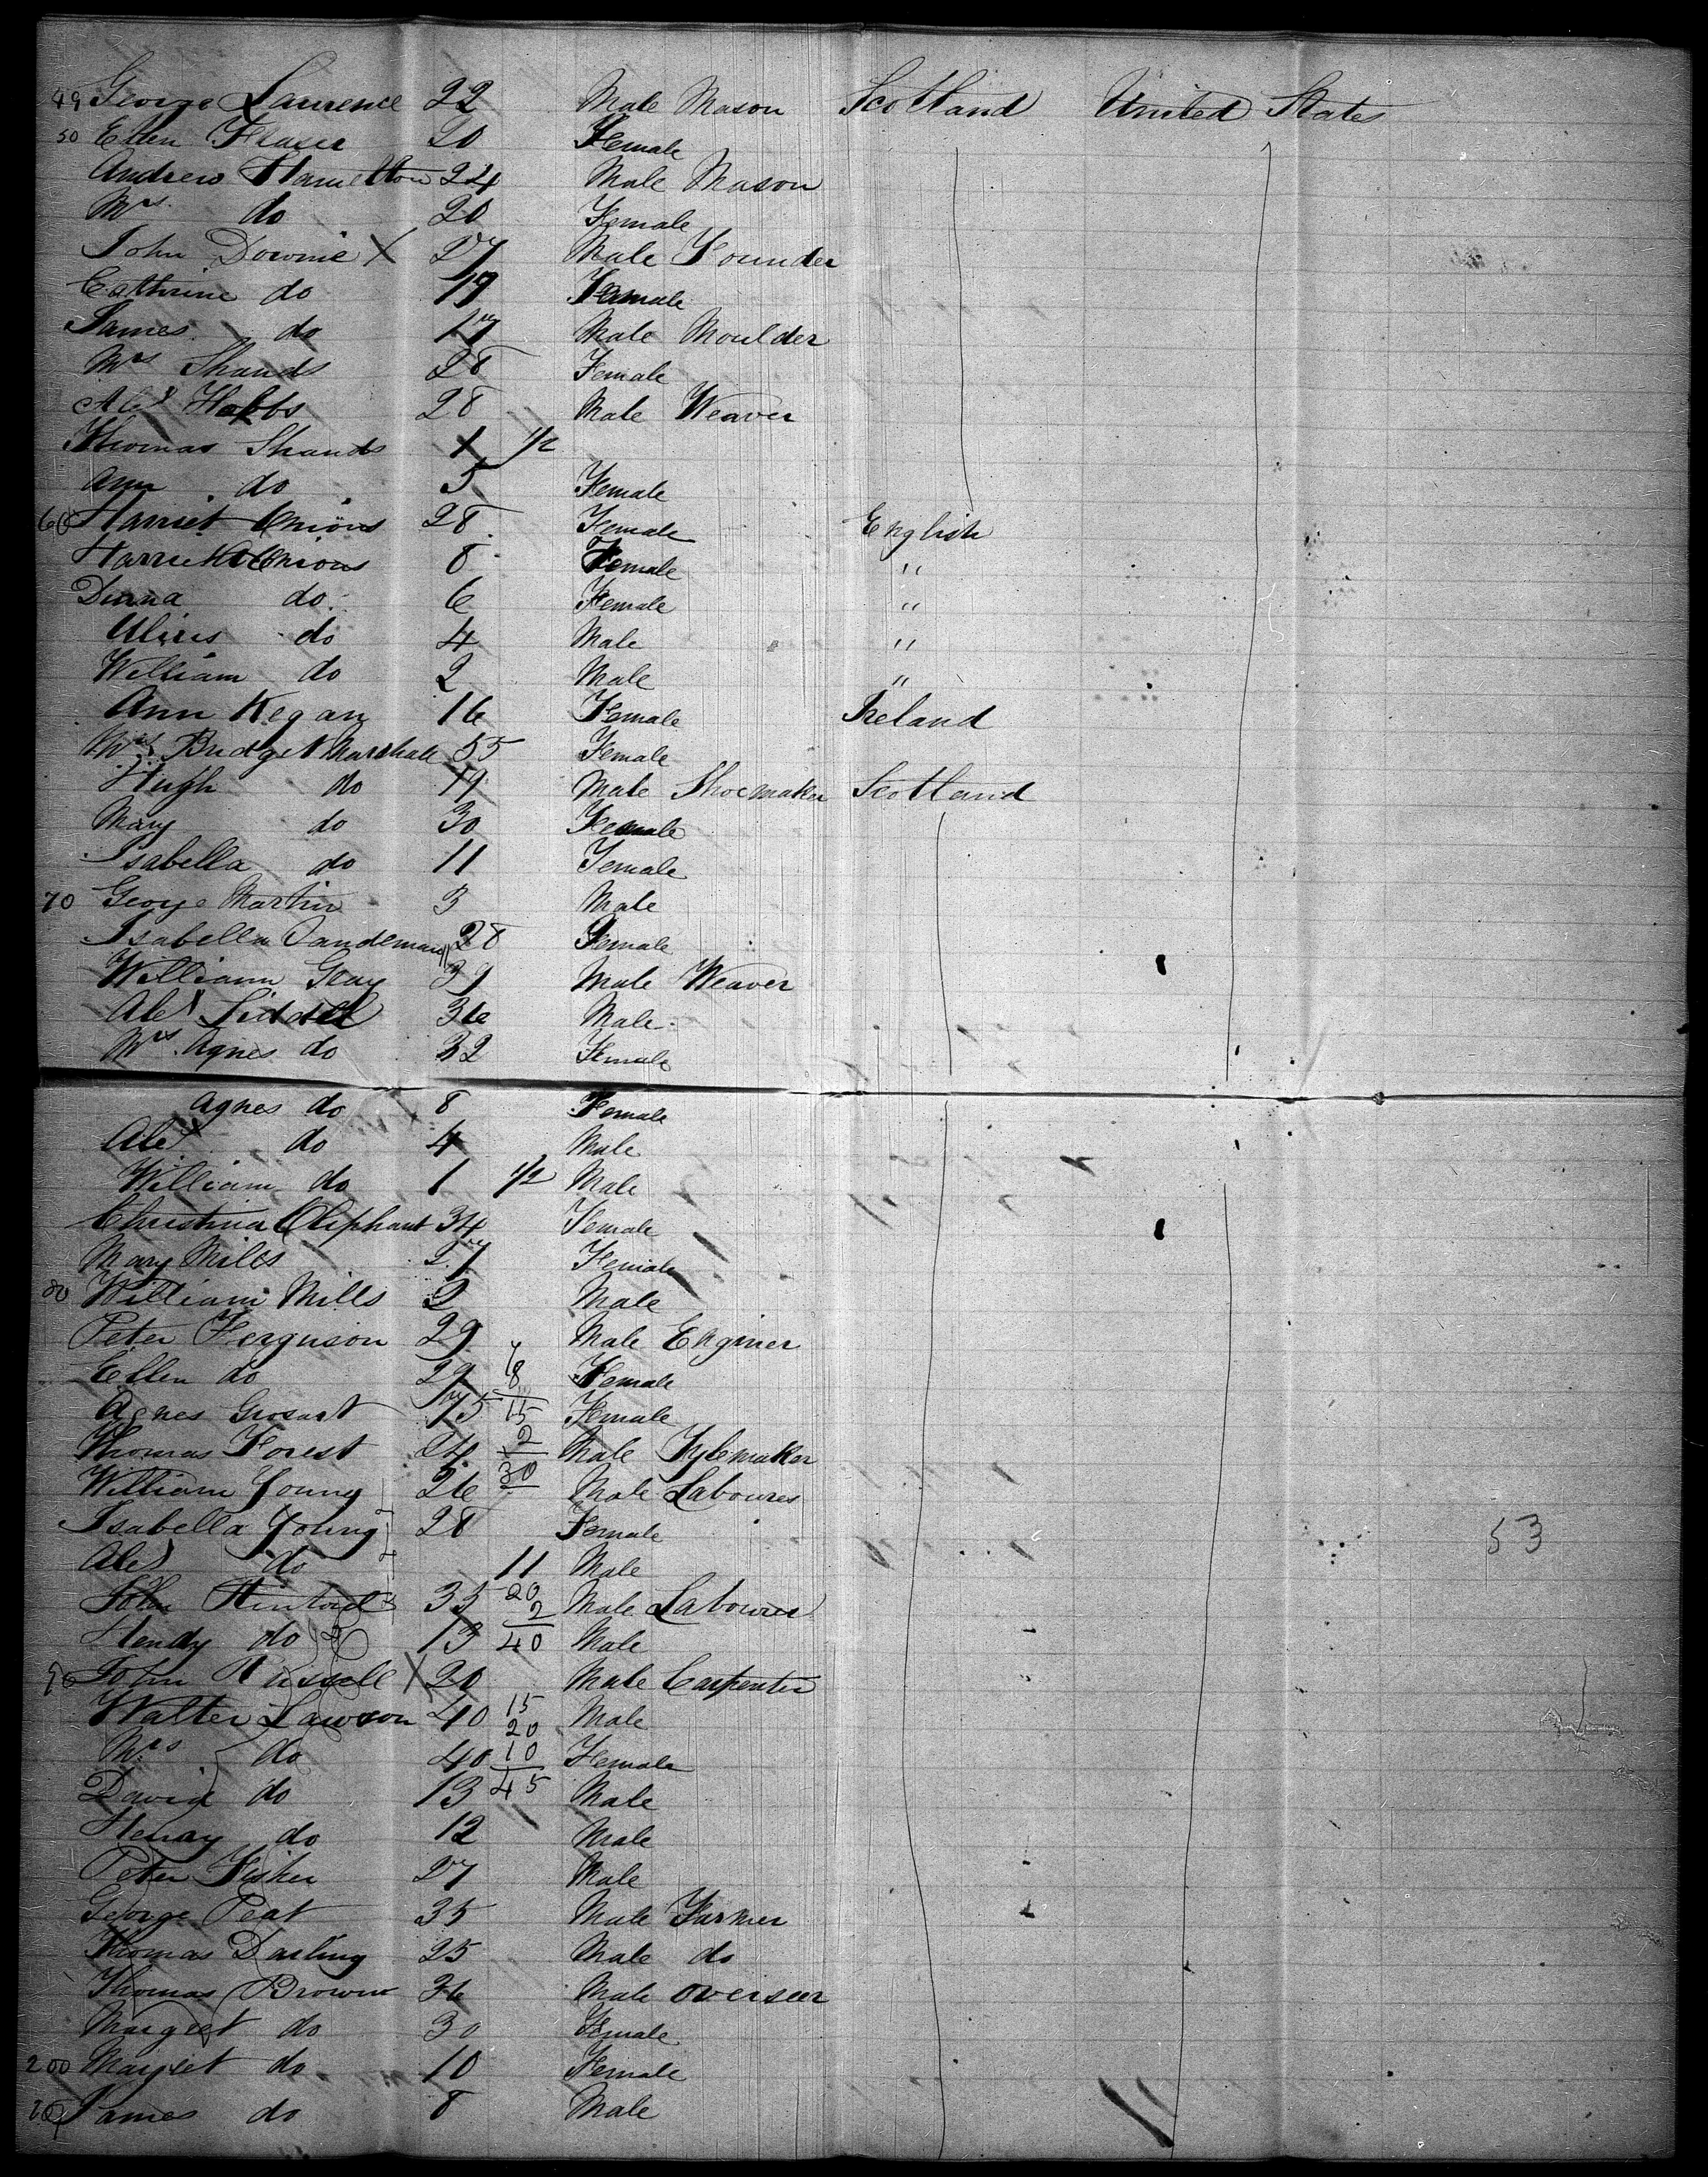 49 George Laurence 22 Male Mason Scotland United States
50 Ellen Fraser 20 Female
Andrew Hamelton 24 Male Mason
Mrs do 20 Female
John Downie X 27 Male Founder
Cathrine do 19 Female
James do 17 Male Moulder
Mrs Shands 28 Female
Alexr Hobbs 28 Male Weaver
Thomas Shands 1 1/2
Ann do 5 Female
60 Harriet Onions 28 Female English
Harriet Onions 8 Female "
Dinna do 6 Female "
do 4 Male "
William do 2 Male "
Ann Kegan 16 Female Ireland
Mrs Bridget Marshall 55 Female
Hugh do 19 Male Shoemaker Scotland
Mary do 30 Female
Isabella do 11 Female
70 George Martin 3 Male
Isabella 28 Female
William Gray 39 Male Weaver
Alexr Liddell 36 Male
Mrs Agnes do 32 Female
Agnes do 8 Female
Alexr do 4 Male
William do 1 1/2 Male
Christina Oliphant 34 Female
Mary Mills 27 Female
80 William Mills 2 Male
Peter Ferguson 29 Male Enginer
Ellen do 29 7 8 Female
Agnes Grosart 75 15 Female
Thomas Forest 24 2 Male Tylemaker
William Young 26 30 Male Labourer
Isabella Young 28 Female 53
Alexr do 11 Male
John 33 20 2 Male Labourer
Hendy do 13 40 Male
90 John Russell X 20 Male Carpenter
Walter Lawson 40 15 20 Male
Mrs do 40 10 Female
David do 13 45 Male
Henry do 12 Male
Peter Fisher 27 Male
George Peat 35 Male Farmer
Thomas Darling 25 Male do
Thomas Brown 36 Male Overseer
Margeet do 30 Female
200 Margeet do 10 Female
201 James do 8 Male